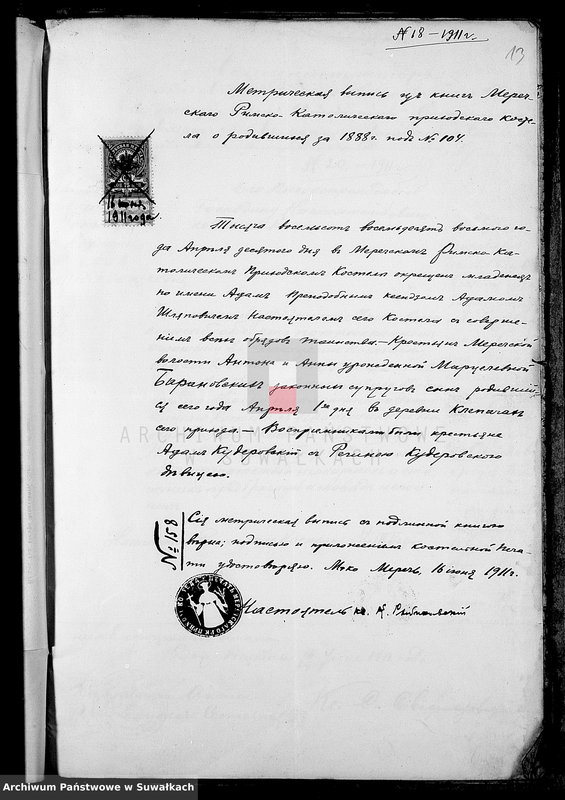 № 18 – 1911 г.
13
Метрическая выпись изъ книгъ Мереч-
скаго Римско-Католическаго приходскаго косте-
ла о родившихся за 1888 г. подъ № 104.
16 юня
1911 года.
Тысяча восемьсотъ восемьдесятъ восьмого го-
да Апрѣля десятаго дня въ Меречскомъ Римско-Ка-
толическомъ Приходскомъ Костелѣ окрещенъ младенецъ
по имени Адамъ Преподобнымъ ксендзомъ Адамомъ
Настоятелемъ сего Костела съ соверше-
ніемъ всѣхъ обрядовъ таинства. – Крестьянъ Меречской
волости Антона и Анны урожденной
Барановскихъ законныхъ супруговъ сынъ родившій-
ся сего года Апрѣля 1го дня въ деревнѣ Клепачахъ
сего прихода. – Воспріемниками были крестьяне
Адамъ Кудеровскій съ Региною Кудеровскою
дѣвицею.
№ 158
Сія метрическая выпись съ подлинной книгою
вѣрна; подписью и приложеніемъ костельной печа-
ти удостовѣряю. М-ко Меречь, 16 іюня 1911 г.
Настоятель кс.
ARCHIWUM PAŃSTWOWE
W SUWAŁKACH
Archiwum Państwowe w Suwałkach